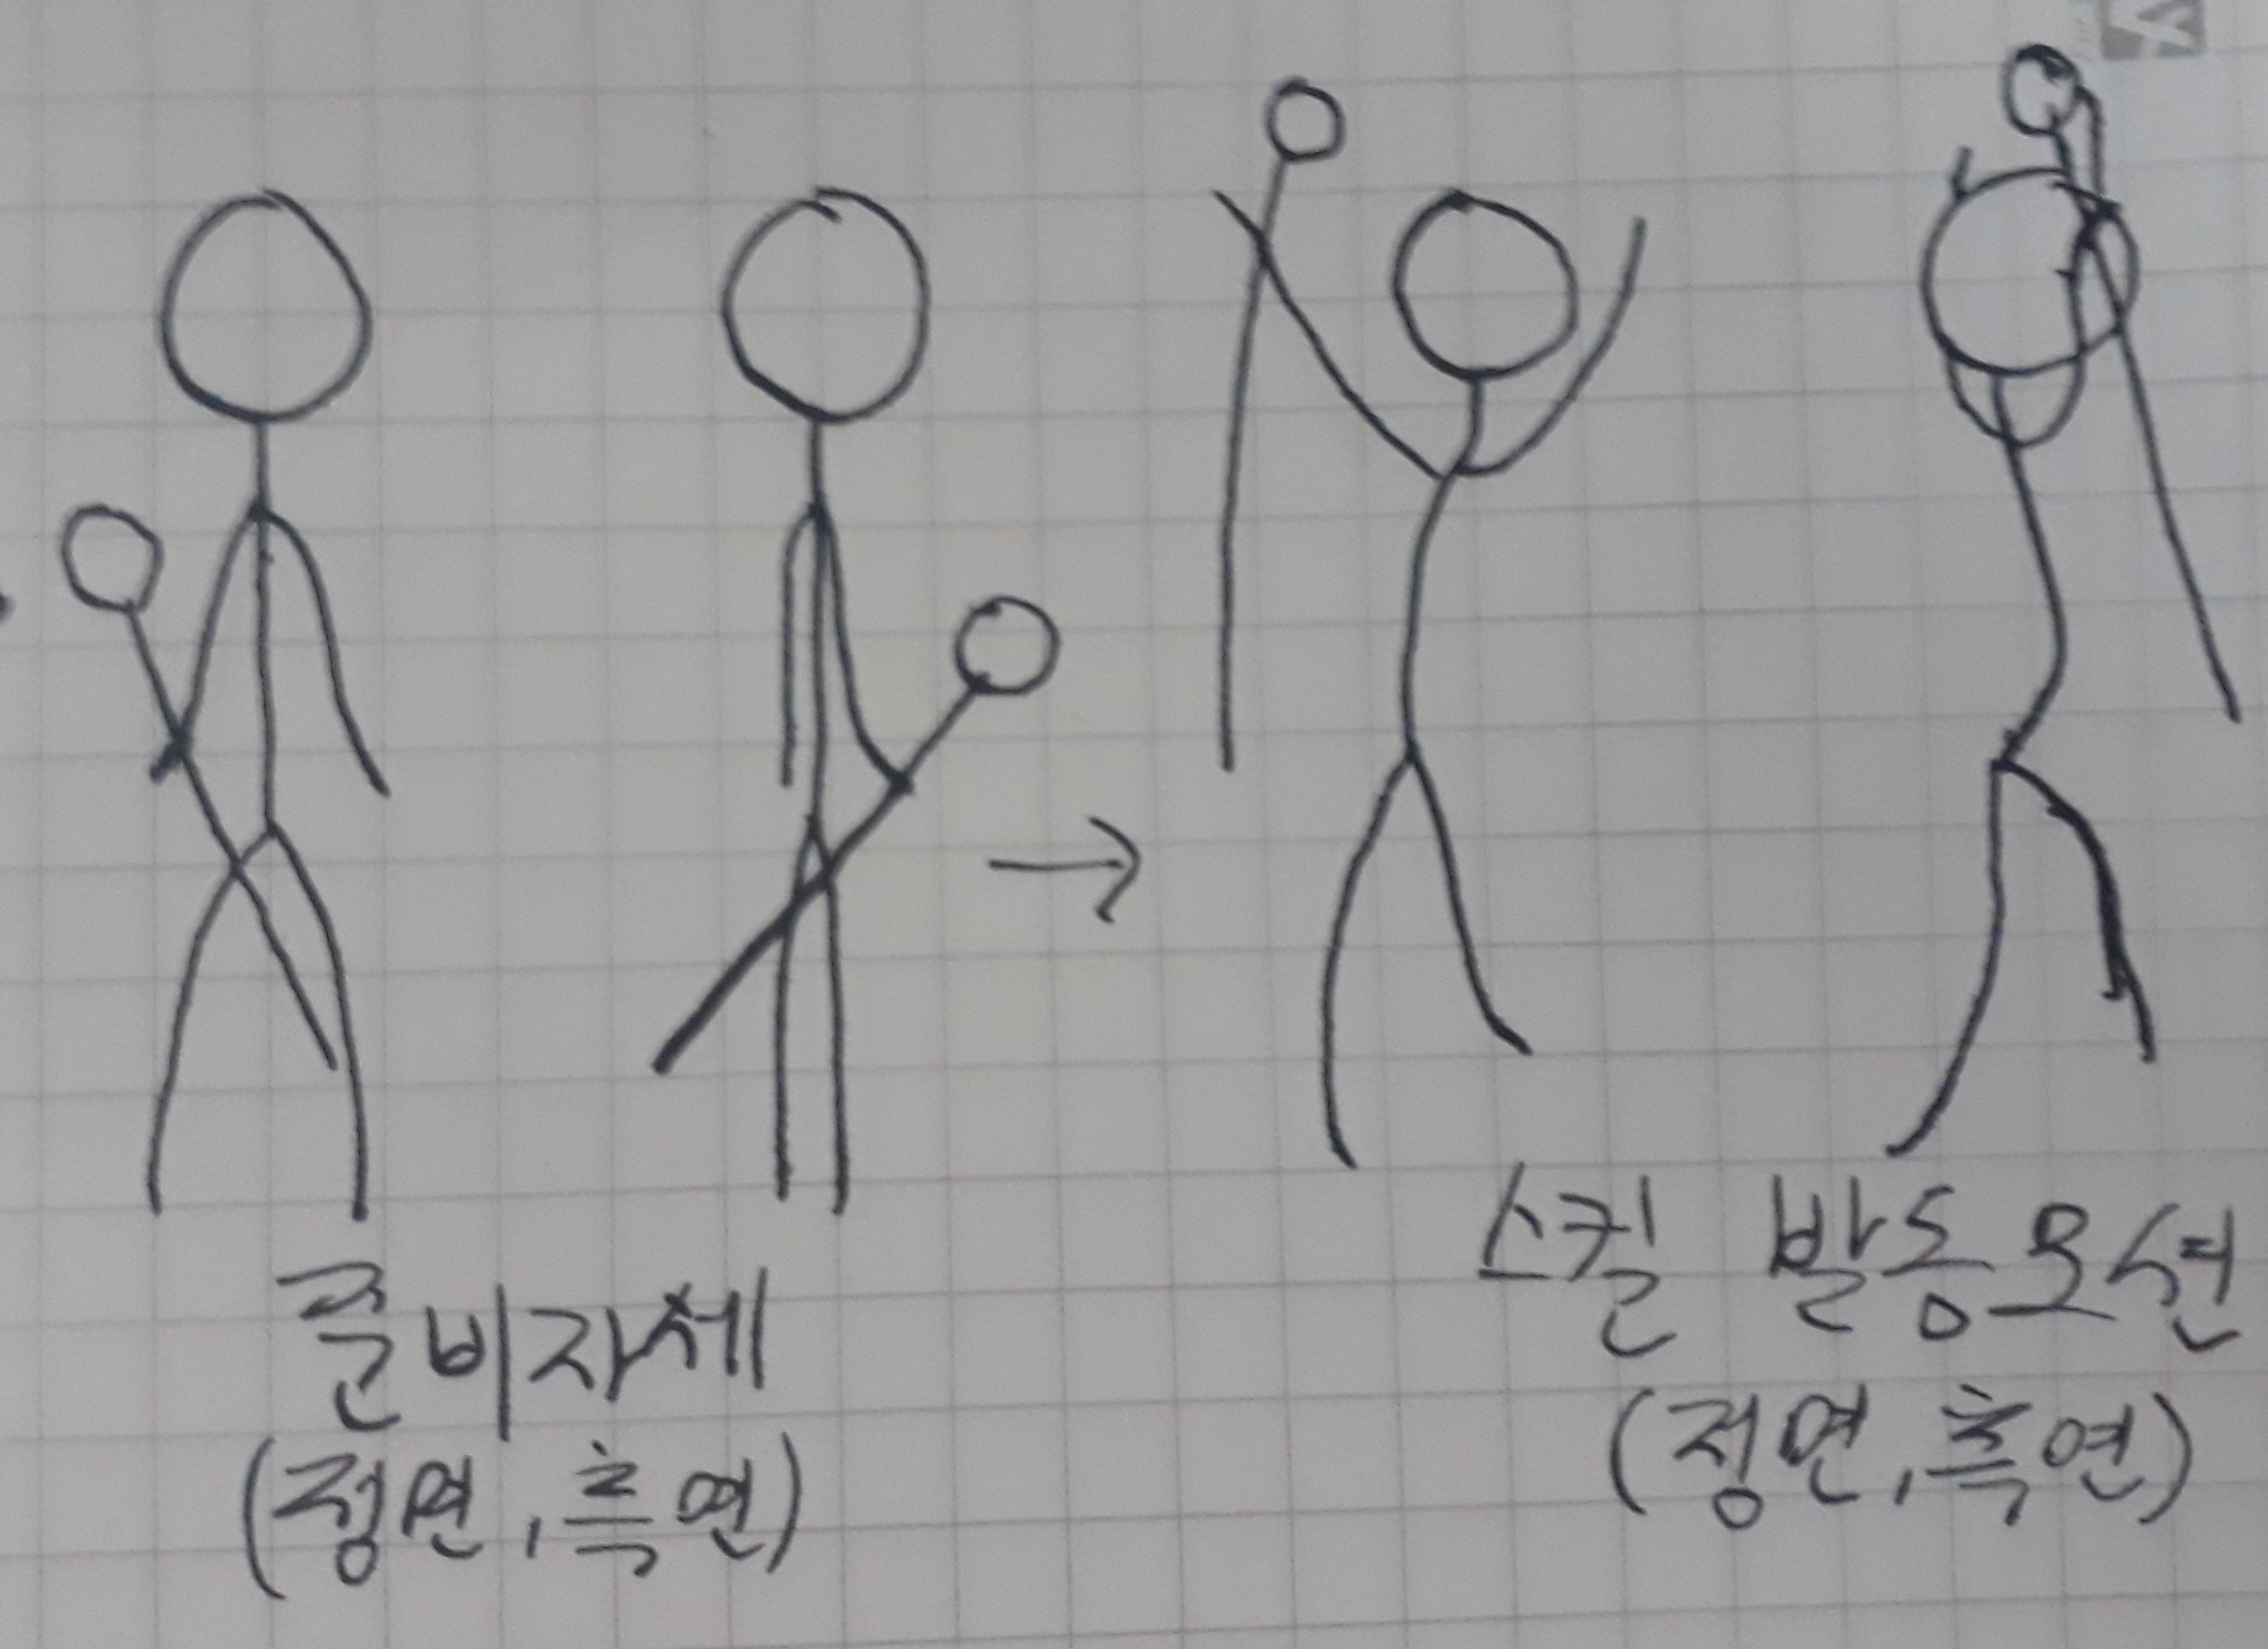 준비자세
(정면, 측면)
스킬 발동모션
(정면, 측면)